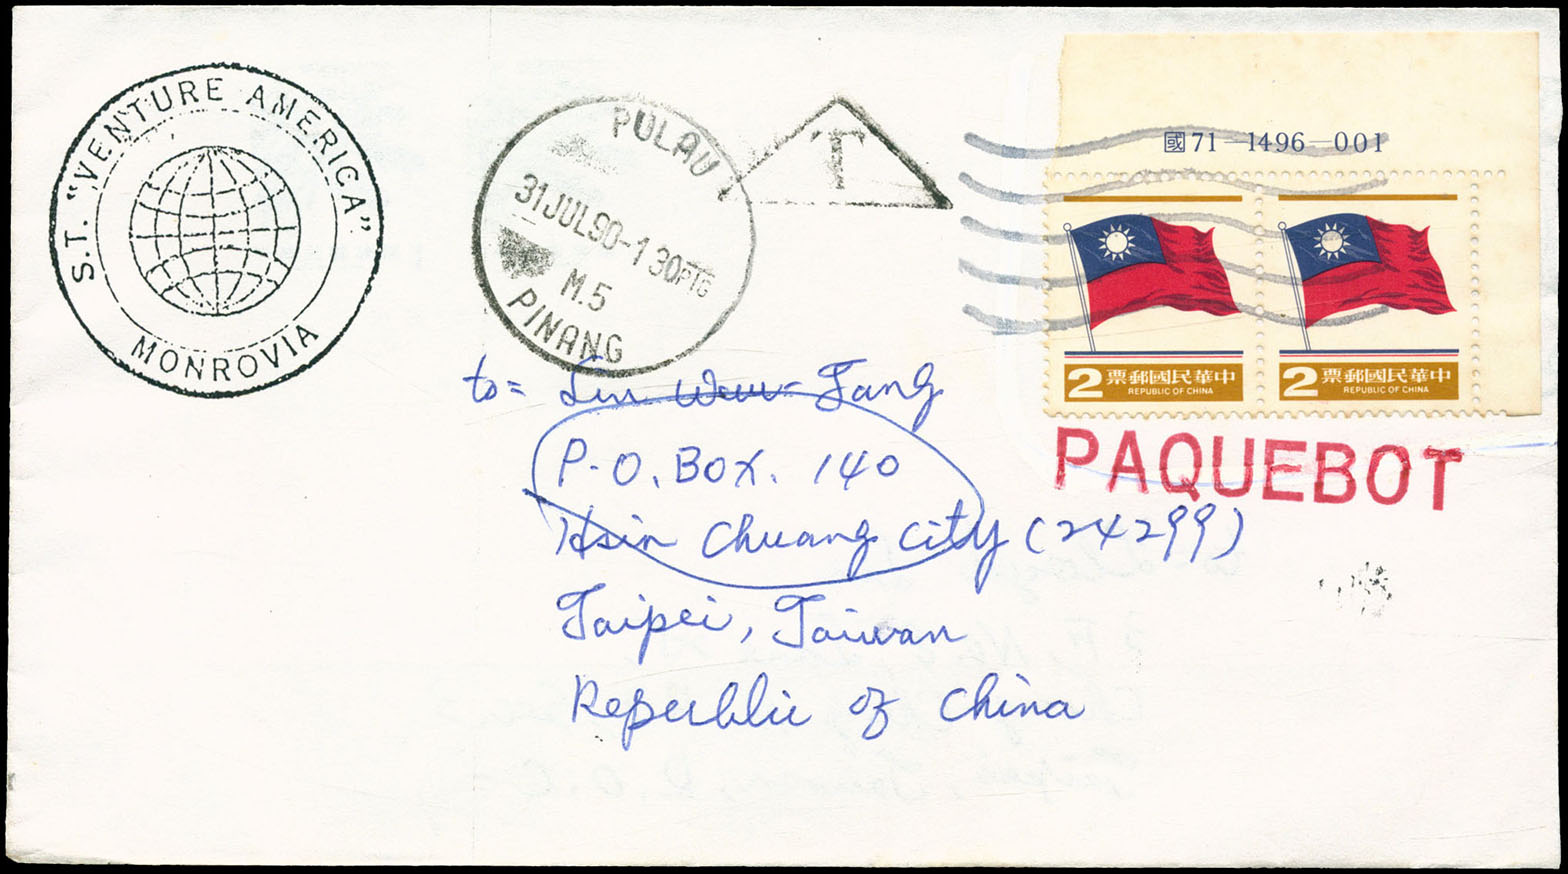 S.T. "VENTURE AMERICA"
MONROVIA
PULAU
31JUL90-1 30PTG
M.5
PINANG
T
國71-1496-001
2 票郵國民華中
REPUBLIC OF CHINA
2 票郵國民華中
REPUBLIC OF CHINA
PAQUEBOT
to= Lin Wen-Tang
P.O. BOX. 140
Hsin Chuang City (24299)
Taipei, Taiwan
Republic of China